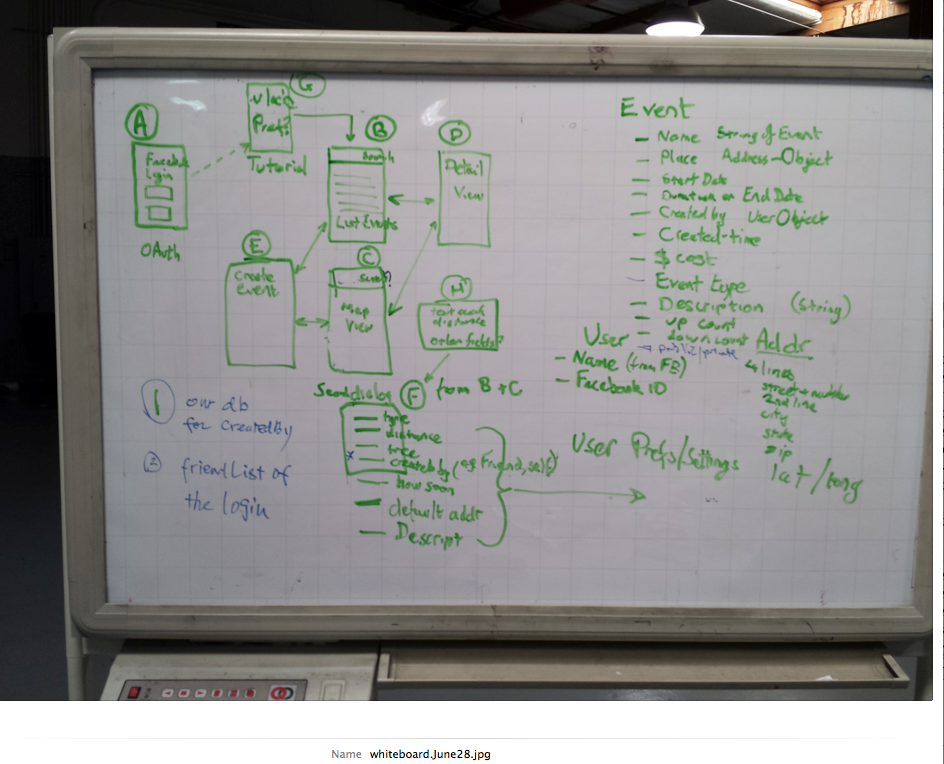 A
Facebook
Login
OAuth
G
Prefs?
Tutorial
B
Search
List Events
D
Detail
View
E
Create
Event
C
Search?
Map
View
H
text each
distance
order fields?
Search dialog
F
from B + C
type
distance
free
* created by (eg Friend, self)
how soon
default addr
Descript
1 our db
for Created by
2 friend List of
the login
Event
- Name String of Event
- Place Address-Object
- Start Date
- Duration or End Date
- Created by User Object
- Created-time
- $ cost
- Event type
- Description (String)
- up count
- down count
- public/private
User
- Name (from FB)
- Facebook ID
Addr
lines
street + number
2nd line
city
state
zip
lat/long
User Prefs/Settings
Name whiteboard.June28.jpg